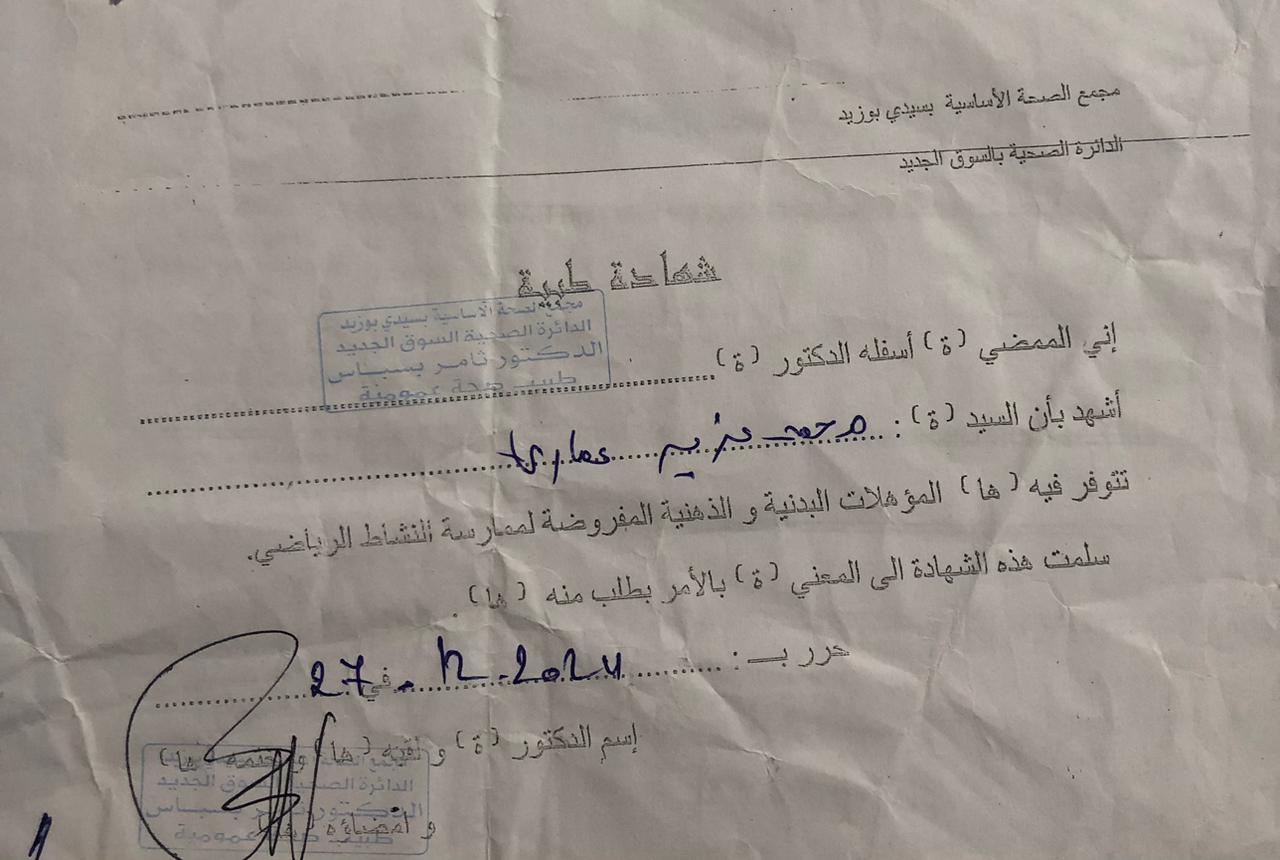 مجمع الصحة الأساسية بسيدي بوزيد
الدائرة الصحية بالسوق الجديد
شهادة طبية
مجمع الصحة الاساسية بسيدي بوزيد
الدائرة الصحية السوق الجديد
الدكتور ثامر بسباس
طبيب صحة عمومية
إني الممضي (ة) أسفله الدكتور (ة)
أشهد بأن السيد (ة) : محمد عزيز عماري
تتوفر فيه (ها) المؤهلات البدنية و الذهنية المفروضة لممارسة النشاط الرياضي.
سلمت هذه الشهادة الى المعني (ة) بالأمر بطلب منه (ها).
حرر بـ : في 27.12.2024
إسم الدكتور (ة) و لقبه (ها) و ختمه (ها)
و امضاؤه (ها)
الدائرة الصحية السوق الجديد
الدكتور ثامر بسباس
طبيب صحة عمومية